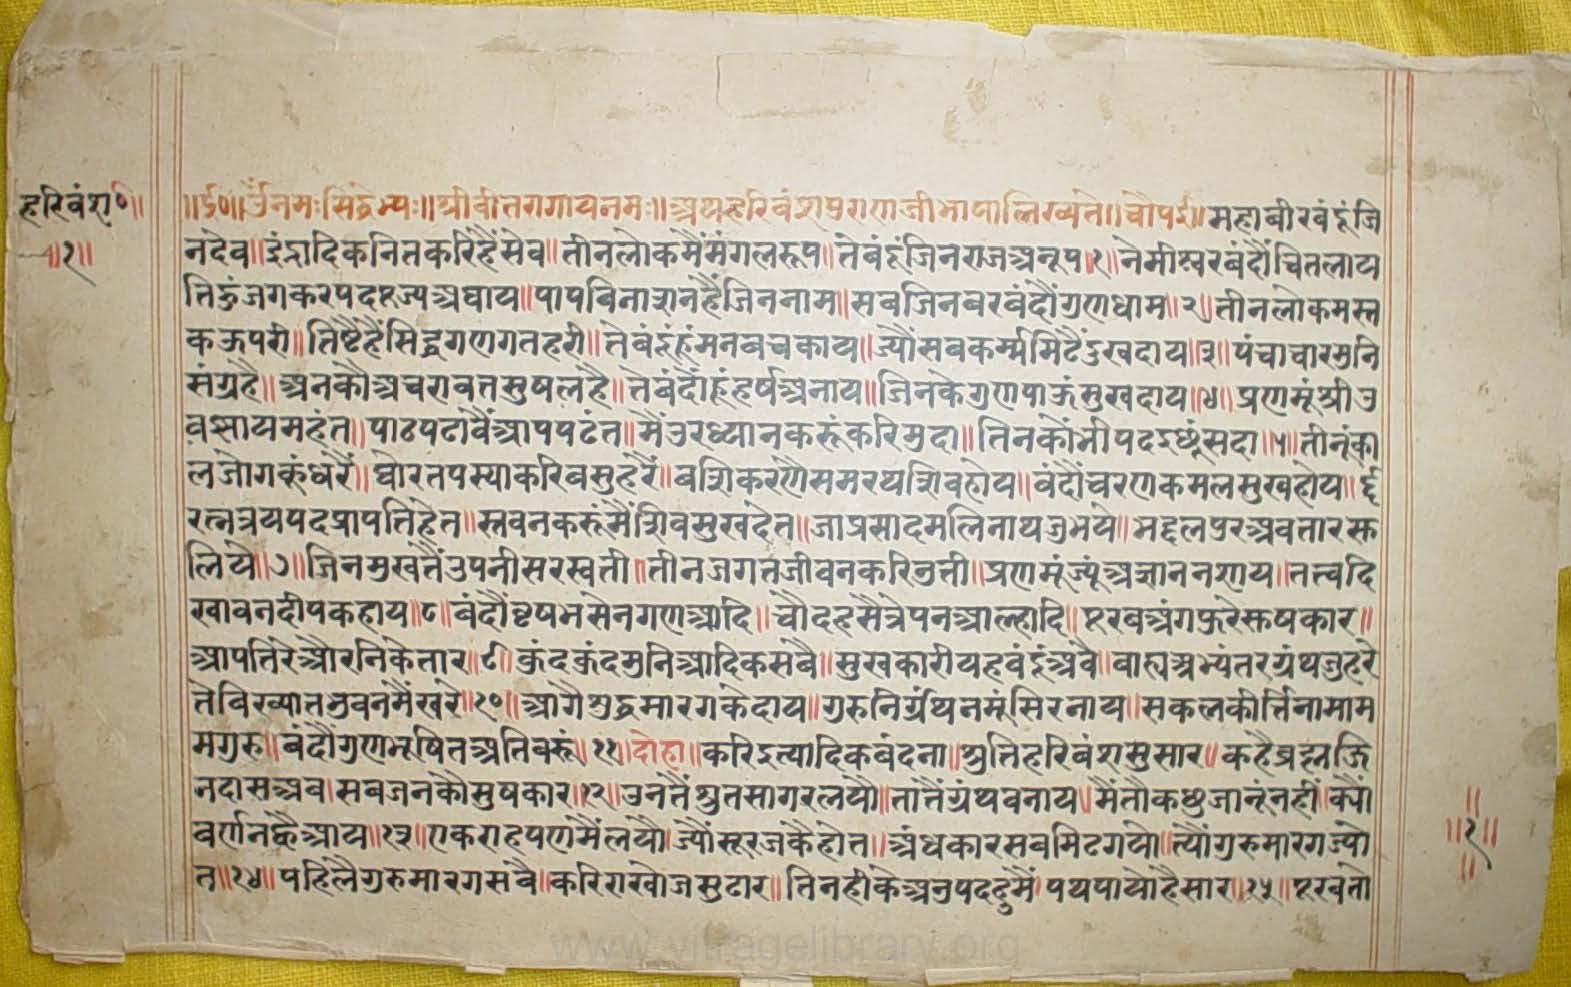 हरिवंश०॥
॥१॥
॥ॐनमःसिद्धेभ्यः॥श्रीवीतरागायनमः॥अथहरिवंशपुराणजीभाषालिख्यते॥चौपई॥महावीरवंदूंजि
नदेव॥इंद्रादिकनितकरिहैंसेव॥तीनलोकमैंमंगलरूप॥तेवंदूंजिनराजअनूप॥१॥नेमीस्वरवंदौंचितलाय
तिहुंजगकरपदपूज्यअघाय॥पापविनाशनहैंजिननाम॥सबजिनवरवंदौंगुणधाम॥२॥तीनलोकमस्त
कऊपरी॥तिष्टैहैंसिद्धगणगतहरी॥तेवंदूंहूंमनबचकाय॥ज्यौंसबकर्म्ममिटैंदुखदाय॥३॥पंचाचारमुनि
संग्रहै॥अनकौअचरावतसुषलहै॥तेवंदौंहूंहर्षअनाय॥जिनकेगुणपाऊंसुखदाय॥४॥प्रणमूंश्रीउ
वझायमहंत॥पाठपढावैंआपपढंत॥मैंउरध्यानकरूंकरिमुदा॥तिनकौंभीपदइछूंसदा॥५॥तीनूंका
लजोगकूंधरैं॥घोरतपस्याकरिवसुहरैं॥बशिकरणैसमरथशिवहोय॥वंदौंचरणकमलसुखहोय॥६॥
रत्नत्रयपदप्रापतिहेत॥स्तवनकरूंमैंशिवसुखदेत॥जाप्रसादमलिनाथजुभये॥भद्दलपुरअवतारस्त
लिये॥७॥जिनमुखतैंउपनीसरस्वती॥तीनजगतजीवनकरिनुत्ती॥प्रणमूंज्यूंअज्ञाननशाय॥तत्त्वदि
खावनदीपकहाय॥८॥वंदौंवृषभसेनगणआदि॥चौदहसैत्रेपनआल्हादि॥पूरबअंगफुरेस्तषकार॥
आपतिरेऔरनिकेतार॥९॥कुंदकुंदमुनिआदिकसबै॥सुखकारीयहवंदूंअबै॥बाह्यअभ्यंतरग्रंथजुहरे
तेविख्यातभुवनमैंखरे॥१०॥आगैशुद्धमारगकेदाय॥गुरुनिग्रंथनमूंसिरनाय॥सकलकीर्त्तिनामाम
मगुरु॥बंदौगुणभूषितअतिवरूं॥११॥दोहा॥करिइत्यादिकवंदना॥श्रुतिहरिवंशसुसार॥कहैब्रह्मजि
नदासअब॥सबजनकौसुषकार॥१२॥उनतैंश्रुतसागरलयौ॥तातैंग्रंथवनाय॥मैंतौकछुजानूंनहीं॥क्यौं
वर्णनह्वैआय॥१३॥एकराहपणमैंलयौ॥ज्यौंसूरजकैहोत॥अंधकारसबमिटगयो॥त्यौंगुरुमारगज्यो
त॥१४॥पहिलैगुरुमारगसबै॥करिराखोजसुढार॥तिनहीकेअनुपददुमैं॥पथपायोहैसार॥१५॥पूरबतो
॥१॥
www.vitragelibrary.org